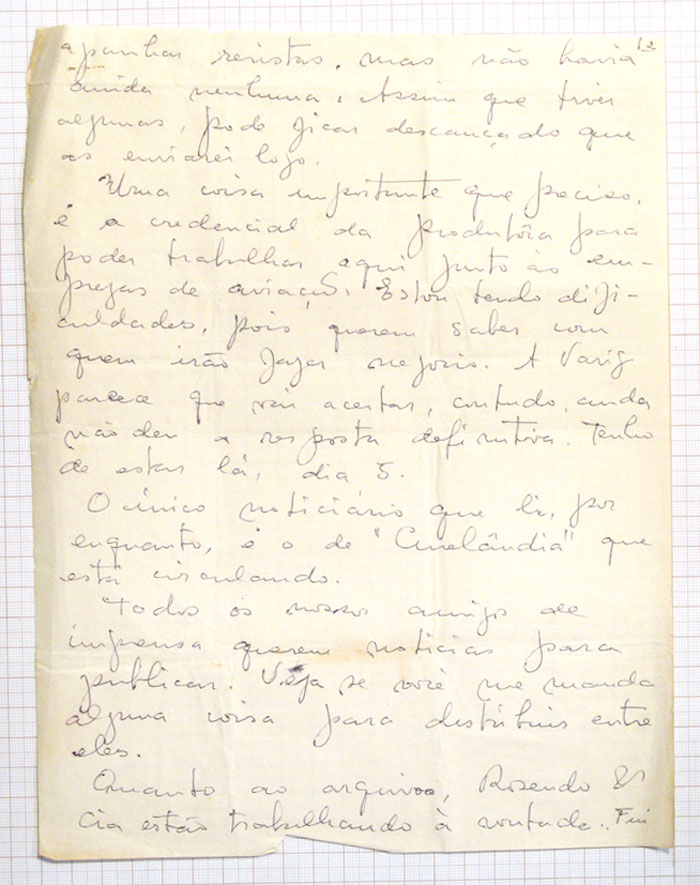 12
apanhar revistas, mas não havia
ainda nenhuma. Assim que tiver
algumas, pode ficar descançado que
as enviarei logo.
Uma coisa importante que preciso,
é a credencial da produtôra para
poder trabalhar aqui junto às em-
prezas de aviação. Estou tendo difi-
culdades, pois querem saber com
quem irão fazer negocio. A Varig
parece que vai aceitar, contudo, ainda
não deu a resposta definitiva. Tenho
de estar lá, dia 5.
O único noticiário que li, por
enquanto, é o de "Cinelândia" que
está circulando.
Todos os nossos amigos de
imprensa querem noticias para
publicar. Veja se você me manda
alguma coisa para distribuir entre
eles.
Quanto ao arquivo, Rosendo &
Cia estão trabalhando à vontade. Fui